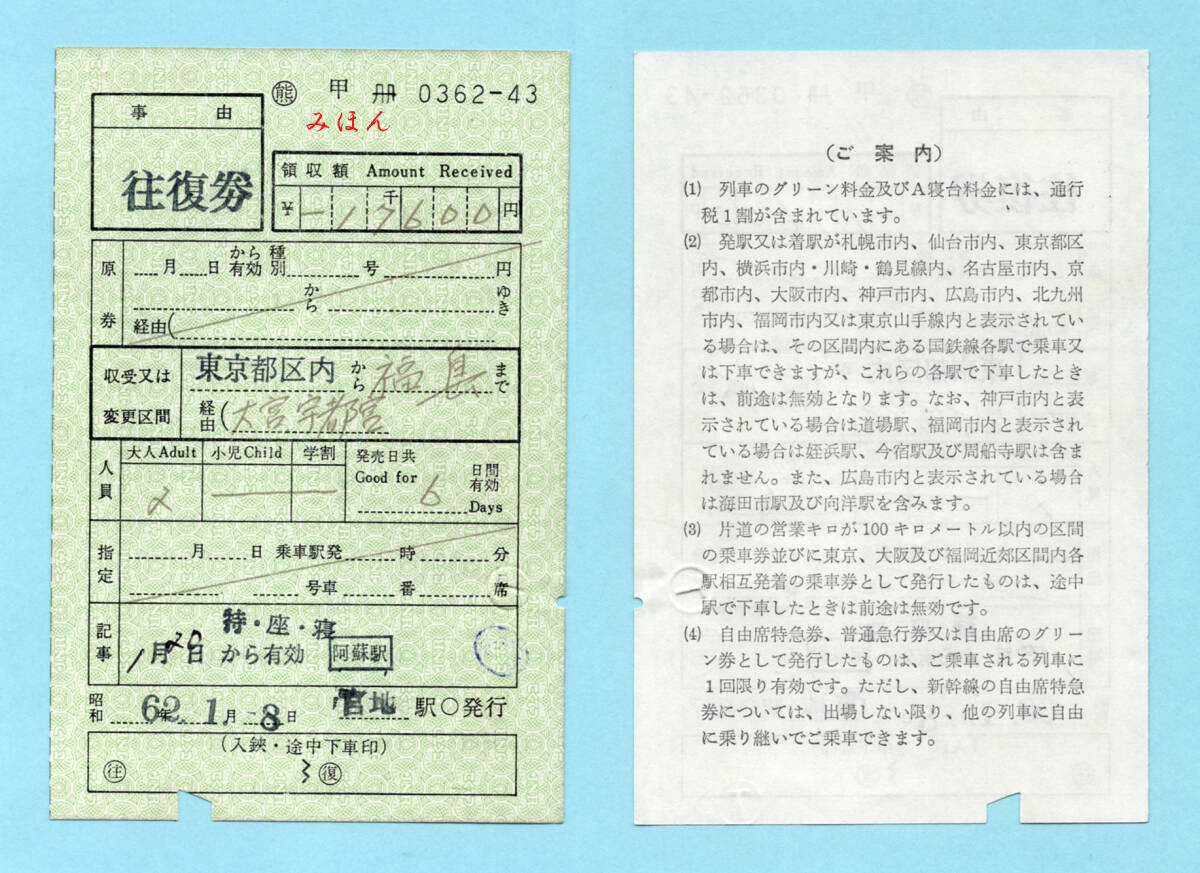 熊 甲 册 0362-43
みほん
事 由
往復券
領収額 Amount Received
¥ -17600 円
千
原券
月 日 から有効 種別 号 円
から ゆき
経由(
収受又は変更区間
東京都区内 から 福島 まで
経由(大宮宇都宮
人員
大人Adult 小児Child 学割
2
発売日共 Good for 6 日間有効 Days
指定
月 日 乗車駅発 時 分
号車 番 席
記事
特・座・寝
1月20日 から有効 阿蘇駅
昭和 62年 1月 -8日 宮地 駅○発行
(入鋏・途中下車印)
往 復
(ご案内)
(1) 列車のグリーン料金及びA寝台料金には、通行
税1割が含まれています。
(2) 発駅又は着駅が札幌市内、仙台市内、東京都区
内、横浜市内・川崎・鶴見線内、名古屋市内、京
都市内、大阪市内、神戸市内、広島市内、北九州
市内、福岡市内又は東京山手線内と表示されてい
る場合は、その区間内にある国鉄線各駅で乗車又
は下車できますが、これらの各駅で下車したとき
は、前途は無効となります。なお、神戸市内と表
示されている場合は道場駅、福岡市内と表示され
ている場合は姪浜駅、今宿駅及び周船寺駅は含ま
れません。また、広島市内と表示されている場合
は海田市駅及び向洋駅を含みます。
(3) 片道の営業キロが100キロメートル以内の区間
の乗車券並びに東京、大阪及び福岡近郊区間内各
駅相互発着の乗車券として発行したものは、途中
駅で下車したときは前途は無効です。
(4) 自由席特急券、普通急行券又は自由席のグリー
ン券として発行したものは、ご乗車される列車に
1回限り有効です。ただし、新幹線の自由席特急
券については、出場しない限り、他の列車に自由
に乗り継いでご乗車できます。